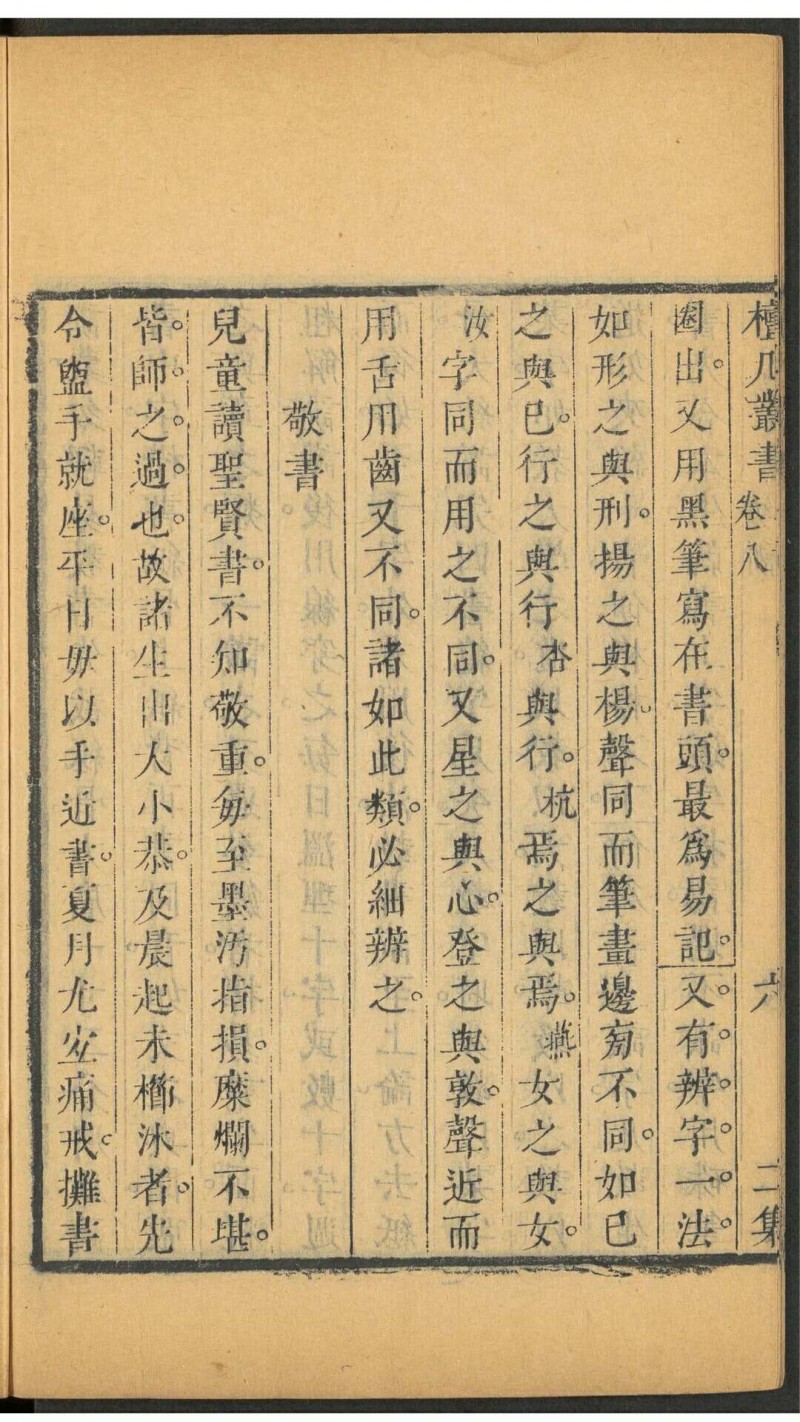 檀几叢書 卷八 六 二集
圈出。又用黑筆寫在書頭。最爲易記。又有辨字一法。
如形之與刑。揚之與楊。聲同而筆畫邊旁不同。如已
之與已。行之與行杏與行。杭焉之與焉。燕女之與女。
汝字同而用之不同。又星之與心。登之與敦。聲近而
用舌用齒又不同。諸如此類。必細辨之。
敬書
兒童讀聖賢書。不知敬重。每至墨污指損。糜爛不堪。
皆師之過也。故諸生出大小恭。及晨起未櫛沐者。先
令盥手就座。平日毋以手近書。夏月尤宜痛戒。攤書